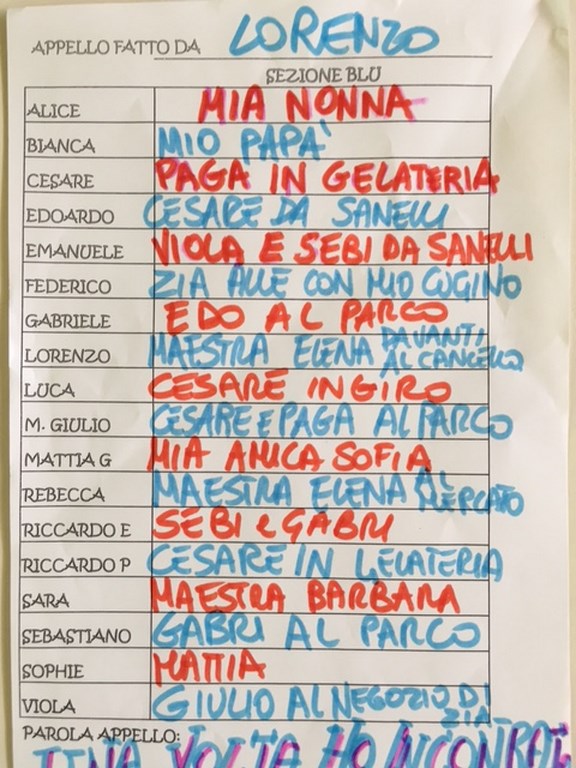 APPELLO FATTO DA LORENZO
SEZIONE BLU
ALICE MIA NONNA
BIANCA MIO PAPA'
CESARE PAGA IN GELATERIA
EDOARDO CESARE DA SANELLI
EMANUELE VIOLA E SEBI DA SANELLI
FEDERICO ZIA ALLE CON MIO CUGINO
GABRIELE EDO AL PARCO
LORENZO MAESTRA ELENA DAVANTI AL CANCELLO
LUCA CESARE IN GIRO
M. GIULIO CESARE E PAGA AL PARCO
MATTIA G MIA AMICA SOFIA
REBECCA MAESTRA ELENA AL MERCATO
RICCARDO E SEBI e GABRI
RICCARDO P CESARE IN GELATERIA
SARA MAESTRA BARBARA
SEBASTIANO GABRI AL PARCO
SOPHIE MATTIA
VIOLA GIULIO AL NEGOZIO DI ZIA
PAROLA APPELLO:
UNA VOLTA HO INCONTRAT